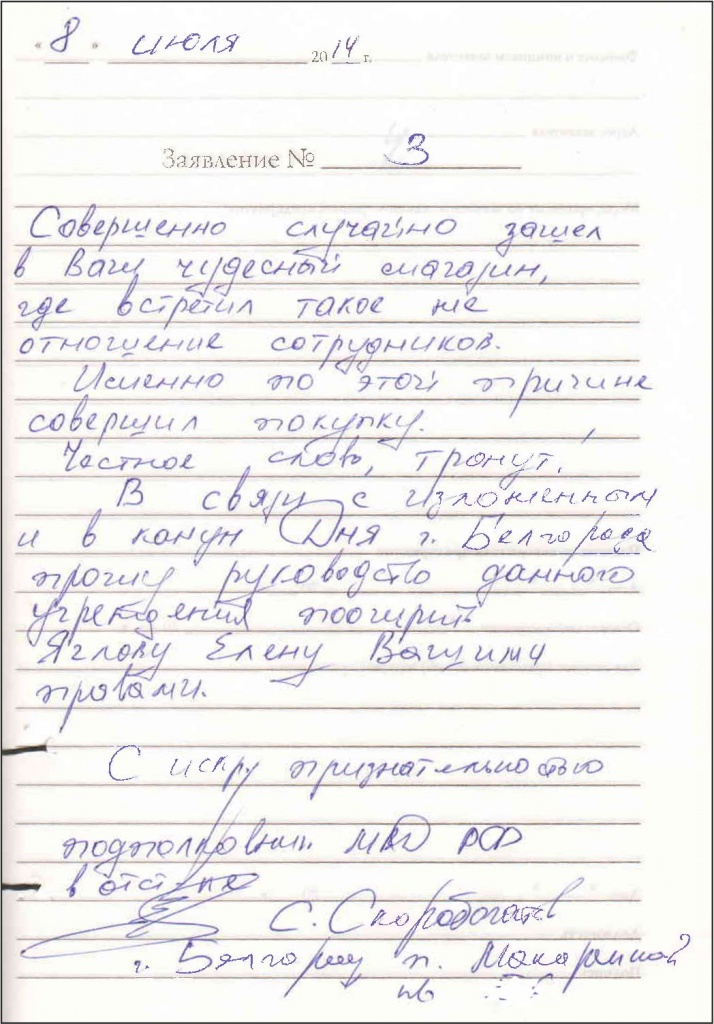 « 8 » июля 2014 г.
Заявление № 3
Совершенно случайно зашел
в Ваш чудесный магазин,
где встретил такое же
отношение сотрудников.
Именно по этой причине
совершил покупку.
Честное слово, тронут.
В связи с изложенным
и в канун Дня г. Белгорода
прошу руководство данного
учреждения поощрить
Яглову Елену Вашими
правами.
С искр признательностью
подполковник МВД РФ
в отставке
С. Скоробогатов
г. Белгород
кв